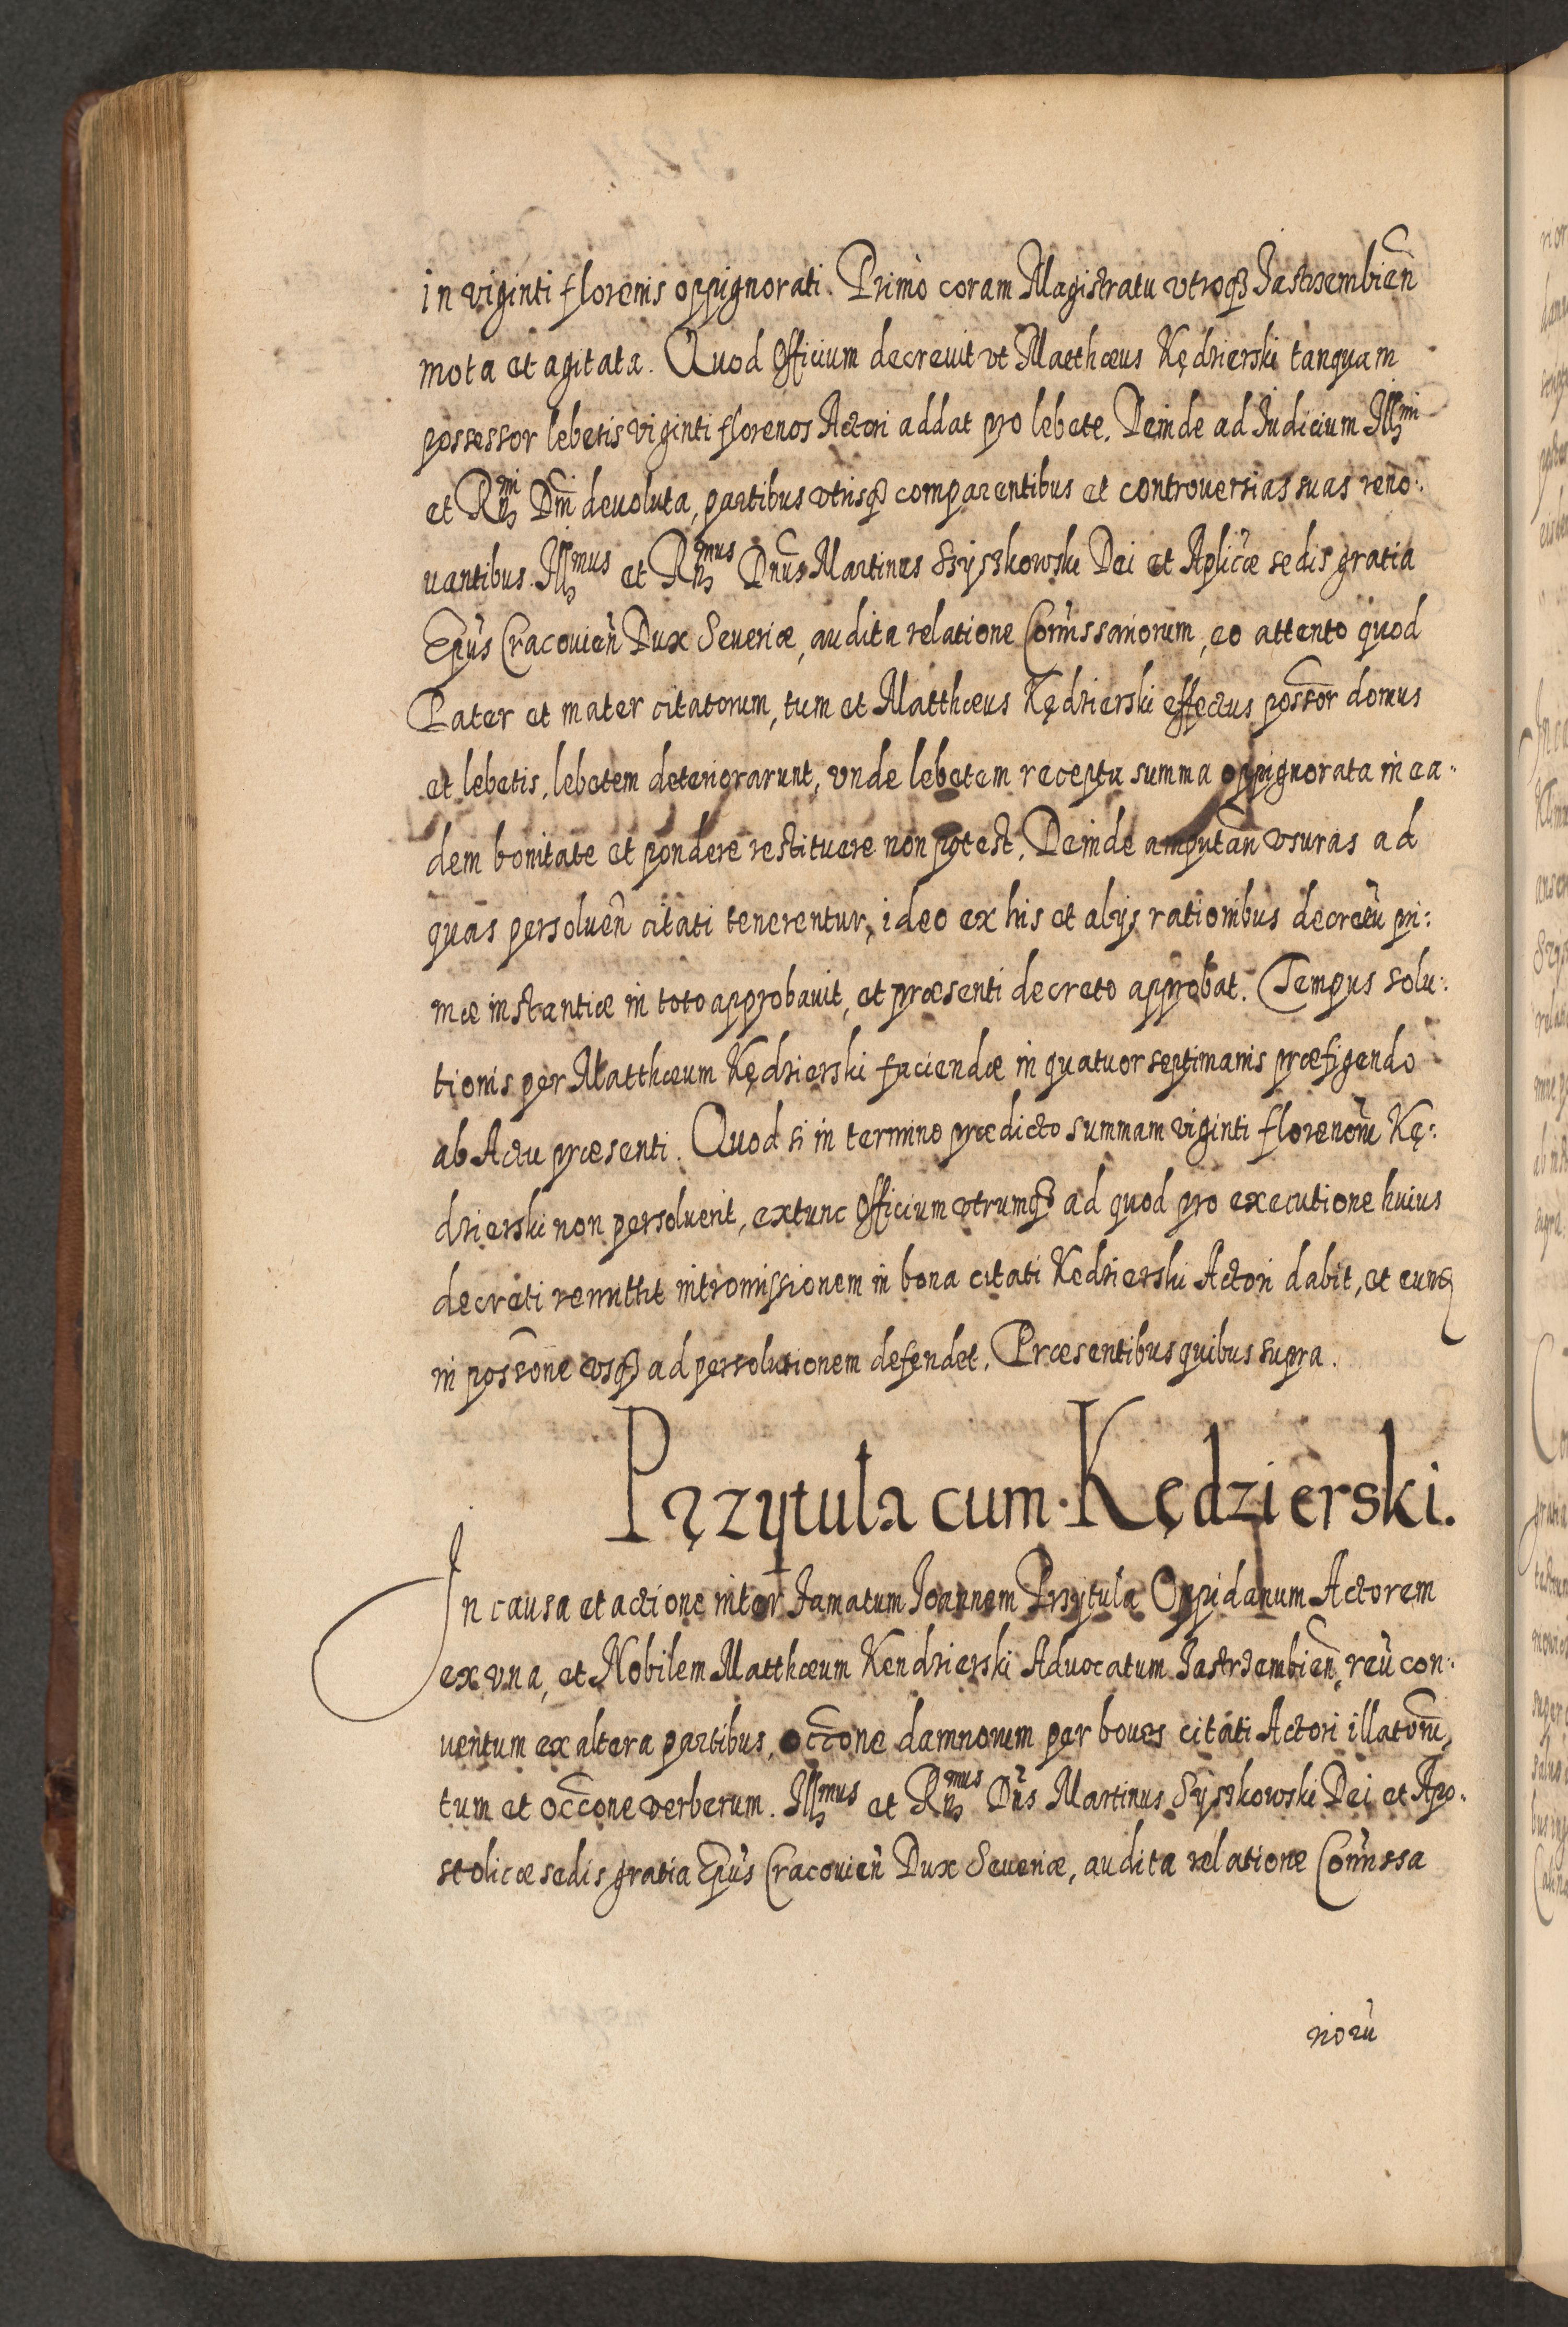 in viginti florenis oppignorati. Primò coram Magistratu vtroq₃ Jastrzembien̄
mota et agitata. Quod Officium decreuit vt Matthæus Kędzierski tanquam
possessor lebetis viginti florenos Actori addat pro lebete. Deinde ad Iudicium Illmi
et Rmi Dni deuoluta, partibus vtrisq₃ comparentibus et controuersias suas reno:
uantibus. Illmus et Rmus Dnus Martinus Szyszkowski Dei et Aplicæ sedis gratia
Epus Cracouien̄ Dux Seueriæ, audita relatione Com̄issariorum, eo attento quod
Pater et mater citatorum, tum et Matthæus Kędzierski effectus possor domus
et lebetis, lebetem deteriorarunt, vnde lebetem recepta summa oppignorata in ea-
dem bonitate et pondere restituere non potest. Deinde amputan̄ vsuras ad
quas persoluen̄ citati tenerentur, ideo ex his et alijs rationibus decretū pri:
mæ instantiæ in toto approbauit, et præsenti decreto approbat. Tempus solu:
tionis per Matthæum Kędzierski faciendæ in quatuor septimanis præfigendo
ab Actu præsenti. Quod si in termino prædicto summam viginti florenorū Kę:
dzierski non persoluerit, extunc Officium vtrumq₃ ad quod pro executione huius
decreti remittit intromissionem in bona citati Kedzierski Actori dabit, et eunq
in possone vsq₃ ad persolutionem defendet. Præsentibus quibus supra.
Przytula cum Kędzierski.
In causa et actione inter famatum Joannem Przytula Oppidanum Actorem
ex vna, et Nobilem Matthæum Kendzierski Aduocatum Jastrzembien̄, reū con:
uentum ex altera partibus, occ̄one damnorum per boues citati Actori illatorū,
tum et occ̄one verberum. Illmus et Rmus Dns Martinus Syszkowski Dei et Apo:
stolicæ sedis gratia Epus Cracouien̄ Dux Seueriæ, audita relatione Com̄issa
riorū